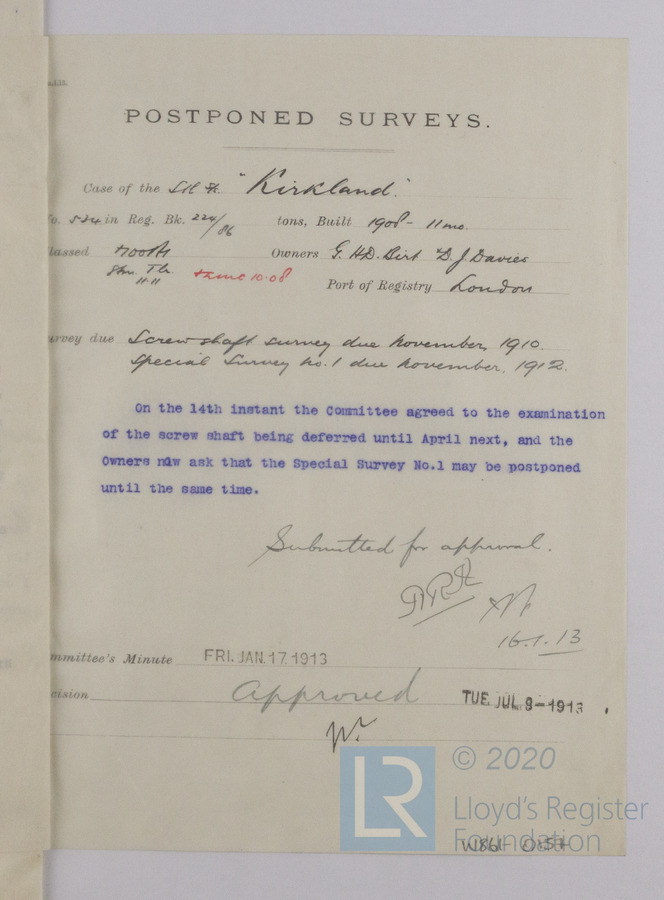 POSTPONED SURVEYS.
Case of the "Kirkland".
524 in Reg. Bk. 224/86 tons, Built 1908 - 11mo.
lassed Owners G. H.D. Birt & D. J. Davies
11.11 10.08 Port of Registry London
urvey due Screw shaft survey due November, 1910.
Special Survey No. 1 due November, 1912.
On the 14th instant the Committee agreed to the examination
of the screw shaft being deferred until April next, and the
Owners now ask that the Special Survey No.1 may be postponed
until the same time.
Submitted for approval.
16.1.13
mmittee's Minute FRI. JAN. 17. 1913
cision Approved TUE. JUL. 8-1913
LR © 2020
Lloyd's Register
Foundation
W861-0157